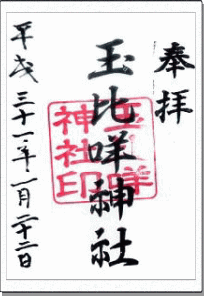 奉拝
玉比咩神社
平成三十一年一月二十二日
玉比咩
神社印